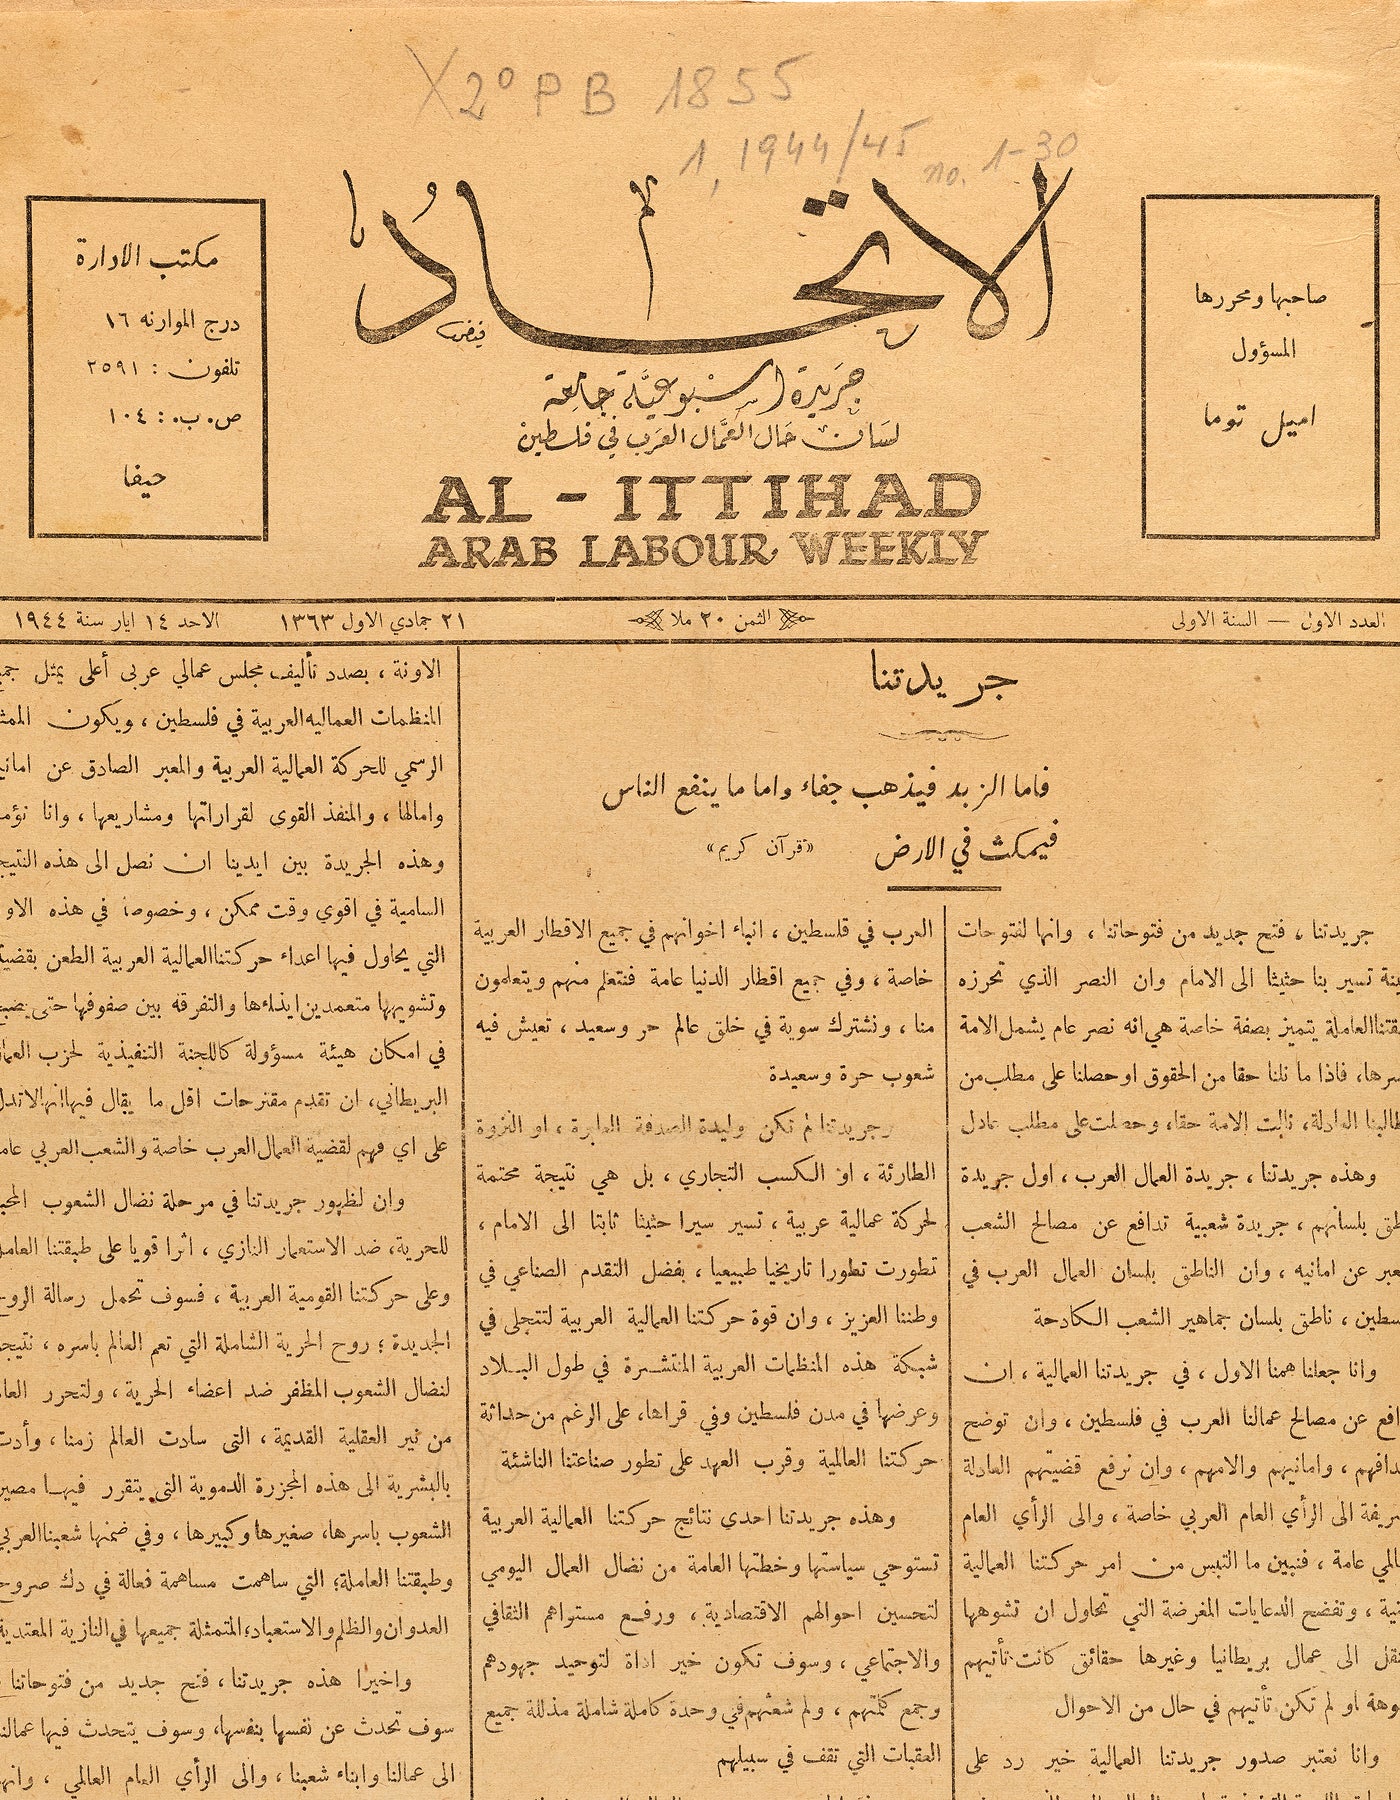 X2° PB 1855
1, 1944/45 no. 1-30
صاحبها ومحررها
المسؤول
اميل توما
الاتحاد
فيض
جريدة اسبوعية جامعة
لسان حال العمال العرب في فلسطين
AL - ITTIHAD
ARAB LABOUR WEEKLY
مكتب الادارة
درج الموارنه ١٦
تلفون : ٢٥٩١
ص. ب. : ١٠٤
حيفا
العدد الاول — السنة الاولى
الثمن ٢٠ ملا
٢١ جمادي الاول ١٣٦٣
الاحد ١٤ ايار سنة ١٩٤٤
جريدتنا
فاما الزبد فيذهب جفاء واما ما ينفع الناس
فيمكث في الارض «قرآن كريم»
جريدتنا ، فتح جديد من فتوحاتنا ، وانها لفتوحات
تسير بنا حثيثا الى الامام وان النصر الذي تحرزه
العاملة يتميز بصفة خاصة هي انه نصر عام يشمل الامة
فاذا ما نلنا حقا من الحقوق او حصلنا على مطلب من
العادلة، نالت الامة حقا، وحصلت على مطلب عادل
وهذه جريدتنا ، جريدة العمال العرب ، اول جريدة
بلسانهم ، جريدة شعبية تدافع عن مصالح الشعب
عن امانيه ، وان الناطق بلسان العمال العرب في
، ناطق بلسان جماهير الشعب الكادحة
وانا جعلنا همنا الاول ، في جريدتنا العمالية ، ان
عن مصالح عمالنا العرب في فلسطين ، وان توضح
، وامانيهم والامهم ، وان نرفع قضيتهم العادلة
الى الرأي العام العربي خاصة ، والى الرأي العام
عامة ، فنبين ما التبس من امر حركتنا العمالية
، وتفضح الدعايات المغرضة التي تحاول ان تشوهها
الى عمال بريطانيا وغيرها حقائق كانت تأتيهم
او لم تكن تأتيهم في حال من الاحوال
وانا نعتبر صدور جريدتنا العمالية خير رد على
العرب في فلسطين ، انباء اخوانهم في جميع الاقطار العربية
خاصة ، وفي جميع اقطار الدنيا عامة فنتعلم منهم ويتعلمون
منا ، ونشترك سوية في خلق عالم حر وسعيد ، تعيش فيه
شعوب حرة وسعيدة
وجريدتنا لم تكن وليدة الصدفة العابرة ، او النزوة
الطارئة ، او الكسب التجاري ، بل هي نتيجة محتمة
لحركة عمالية عربية ، تسير سيرا حثيثا ثابتا الى الامام ،
تطورت تطورا تاريخيا طبيعيا ، بفضل التقدم الصناعي في
وطننا العزيز ، وان قوة حركتنا العمالية العربية لتتجلى في
شبكة هذه المنظمات العربية المنتشرة في طول البلاد
وعرضها في مدن فلسطين وفي قراها، على الرغم من حداثة
حركتنا العالمية وقرب العهد على تطور صناعتنا الناشئة
وهذه جريدتنا احدى نتائج حركتنا العمالية العربية
تستوحي سياستها وخطتها العامة من نضال العمال اليومي
لتحسين احوالهم الاقتصادية ، ورفع مستواهم الثقافي
والاجتماعي ، وسوف تكون خير اداة لتوحيد جهودهم
وجمع كلمتهم ، ولم شعثهم في وحدة كاملة شاملة مذللة جميع
العقبات التي تقف في سبيلهم
الاونة ، بصدد تأليف مجلس عمالي عربي أعلى يمثل
المنظمات العماليه العربية في فلسطين ، ويكون
الرسمي للحركة العمالية العربية والمعبر الصادق عن
وامالها ، والمنفذ القوي لقراراتها ومشاريعها ، وانا
وهذه الجريدة بين ايدينا ان نصل الى هذه
السامية في اقوى وقت ممكن ، وخصوصا في هذه
التي يحاول فيها اعداء حركتنا العمالية العربية الطعن
وتشويهها متعمدين ايذاءها والتفرقه بين صفوفها حتى
في امكان هيئة مسؤولة كاللجنة التنفيذية لحزب
البريطاني، ان تقدم مقترحات اقل ما يقال فيها انها لا تدل
على اي فهم لقضية العمال العرب خاصة والشعب العربي
وان لظهور جريدتنا في مرحلة نضال الشعوب
للحرية، ضد الاستعمار النازي ، اثرا قويا على طبقتنا
وعلى حركتنا القومية العربية ، فسوف تحمل رسالة
الجديدة ؛ روح الحرية الشاملة التي تعم العالم باسره ،
لنضال الشعوب المظفر ضد اعضاء الحرية ، ولتحرر
من نير العقلية القديمة ، التى سادت العالم زمنا ،
بالبشرية الى هذه المجزرة الدموية التى يتقرر فيها
الشعوب باسرها، صغيرها وكبيرها ، وفي ضمنها شعبنا
وطبقتنا العاملة؛ التي ساهمت مساهمة فعالة في دك
العدوان والظلم والاستعباد؛ المتمثلة جميعها في النازية
واخيرا هذه جريدتنا ، فتح جديد من فتوحاتنا
سوف تحدث عن نفسها بنفسها، وسوف يتحدث فيها
الى عمالنا وابناء شعبنا ، والى الرأي العام العالمي ،